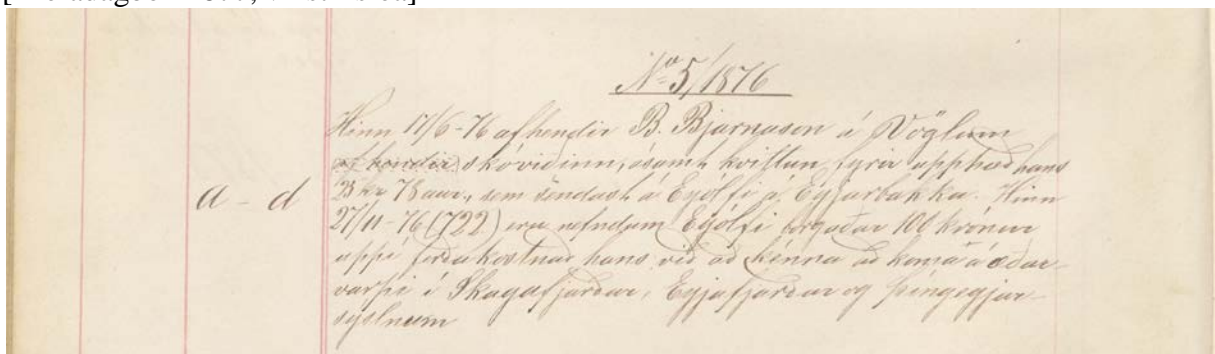 No 5/1876
Hinn 17/6-76 afhendir B. Bjarnason á Vöglum
afhendir skóviðinn, ásamt kvittun fyrir upphæð hans
a - d
23 kr 78 aur., sem sendast á Eyólfi á Eyjarbakka. Hinn
27/11-76 (722) eru nefndum Eyólfi borgaðar 100 krónur
uppí ferðakostnað hans við að kénna að koma á æðar-
varpi í Skagafjarðar, Eyjafjarðar og þingegjar-
sýslnum